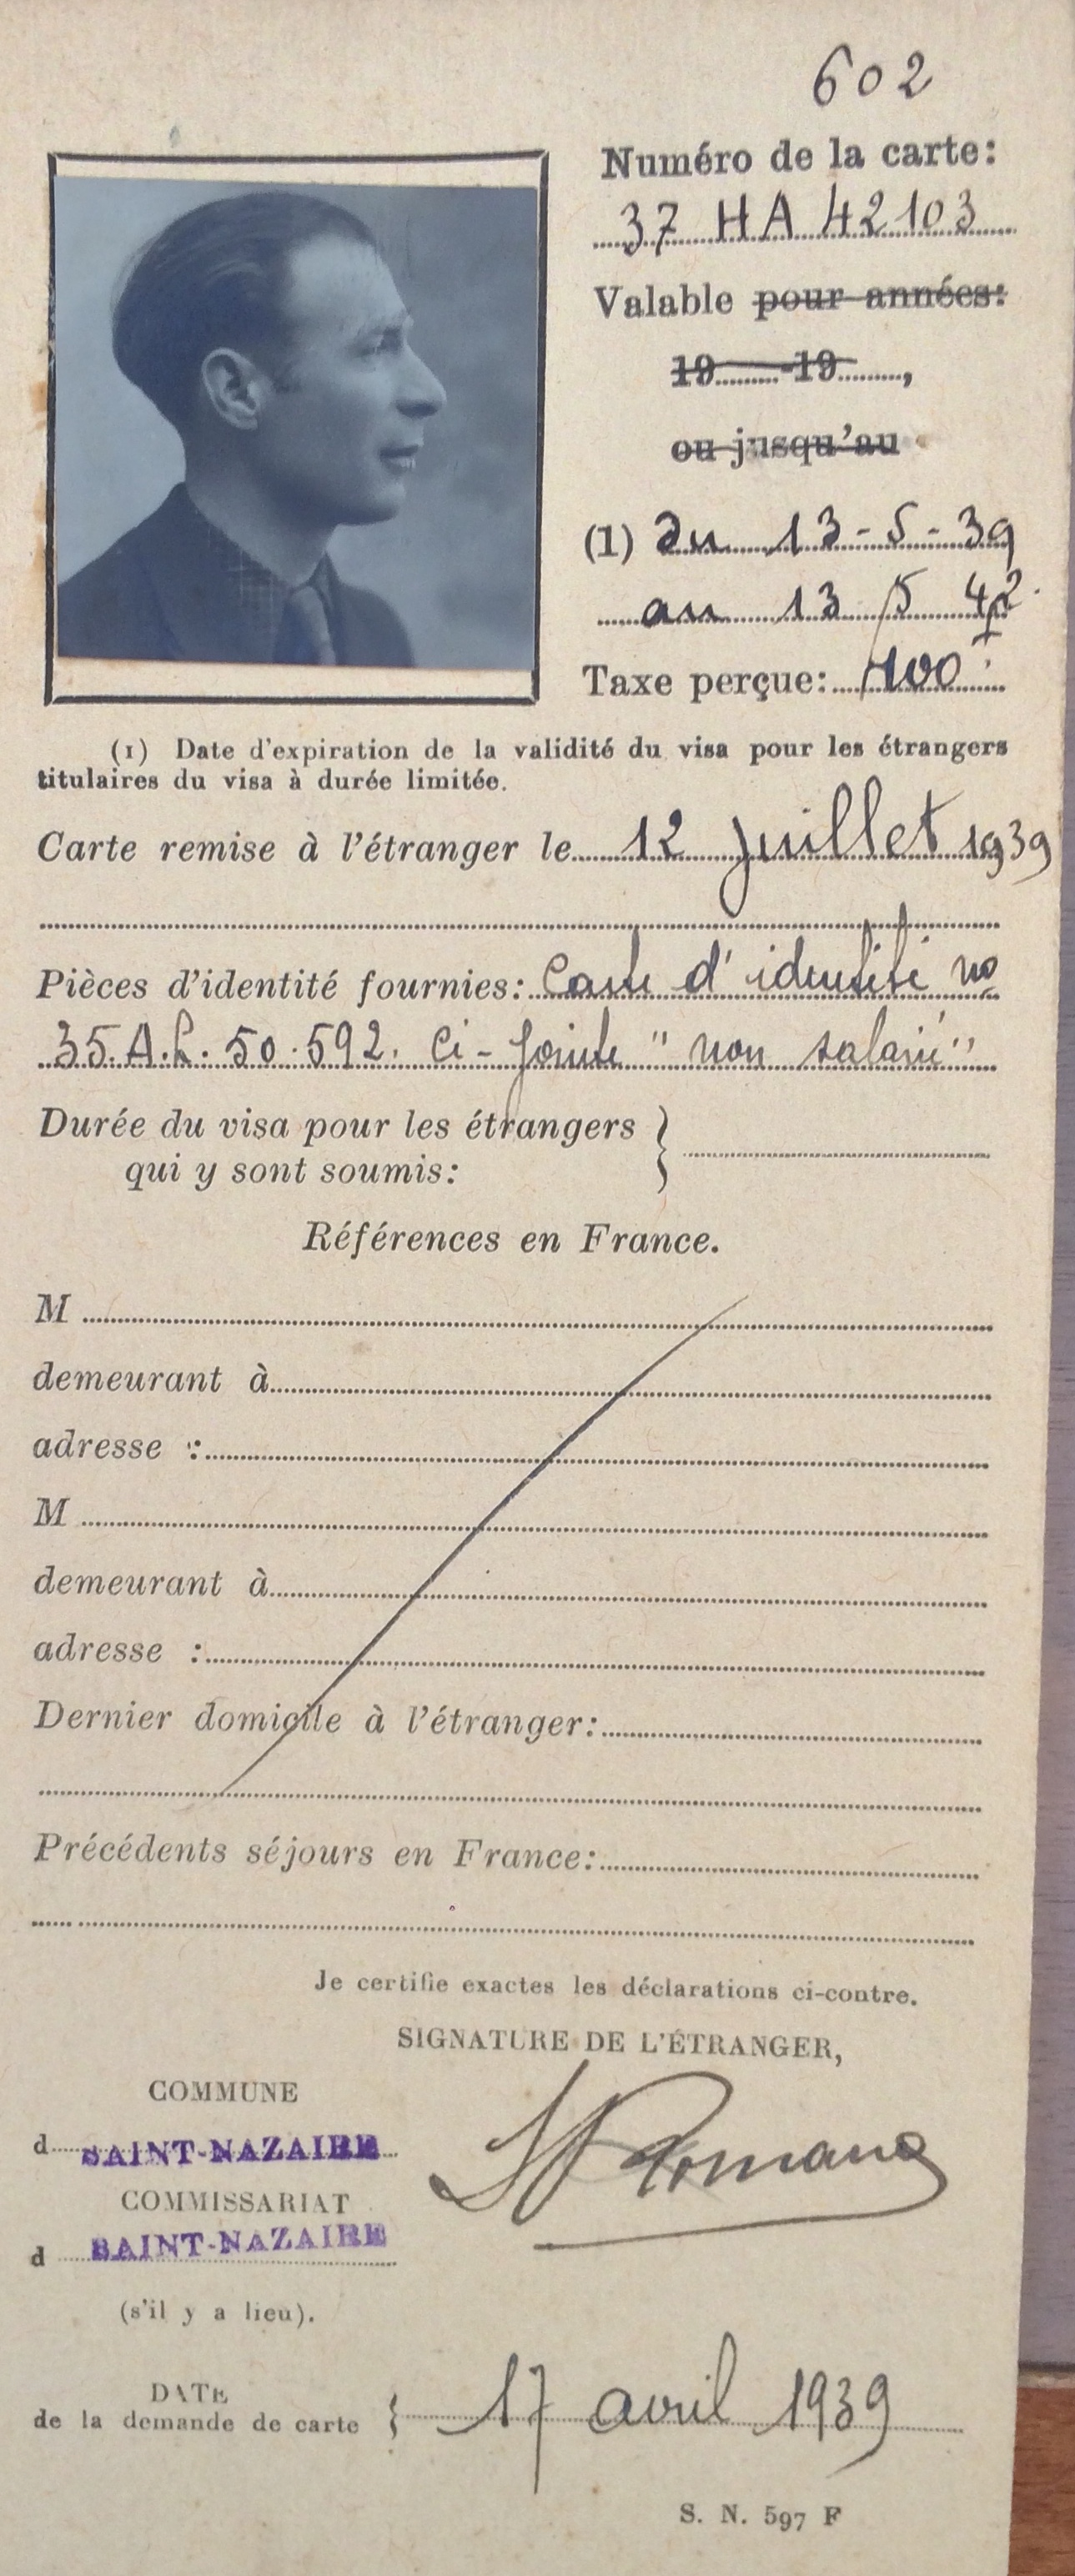 602
Numéro de la carte:
37 HA 42103
Valable pour années:
19 -19 ,
ou jusqu'au
(1) du 13-5-39
au 13 5 42
Taxe perçue: 400 f
(1) Date d'expiration de la validité du visa pour les étrangers
titulaires du visa à durée limitée.
Carte remise à l'étranger le 12 juillet 1939
Pièces d'identité fournies: Carte d'identité no
35.A.L. 50.592. ci-jointe "non salarié"
Durée du visa pour les étrangers
qui y sont soumis:
Références en France.
M
demeurant à
adresse :
M
demeurant à
adresse :
Dernier domicile à l'étranger:
Précédents séjours en France:
Je certifie exactes les déclarations ci-contre.
SIGNATURE DE L'ÉTRANGER,
COMMUNE
d SAINT-NAZAIRE
Romano
COMMISSARIAT
d SAINT-NAZAIRE
(s'il y a lieu).
DATE
de la demande de carte 17 avril 1939
S. N. 597 F